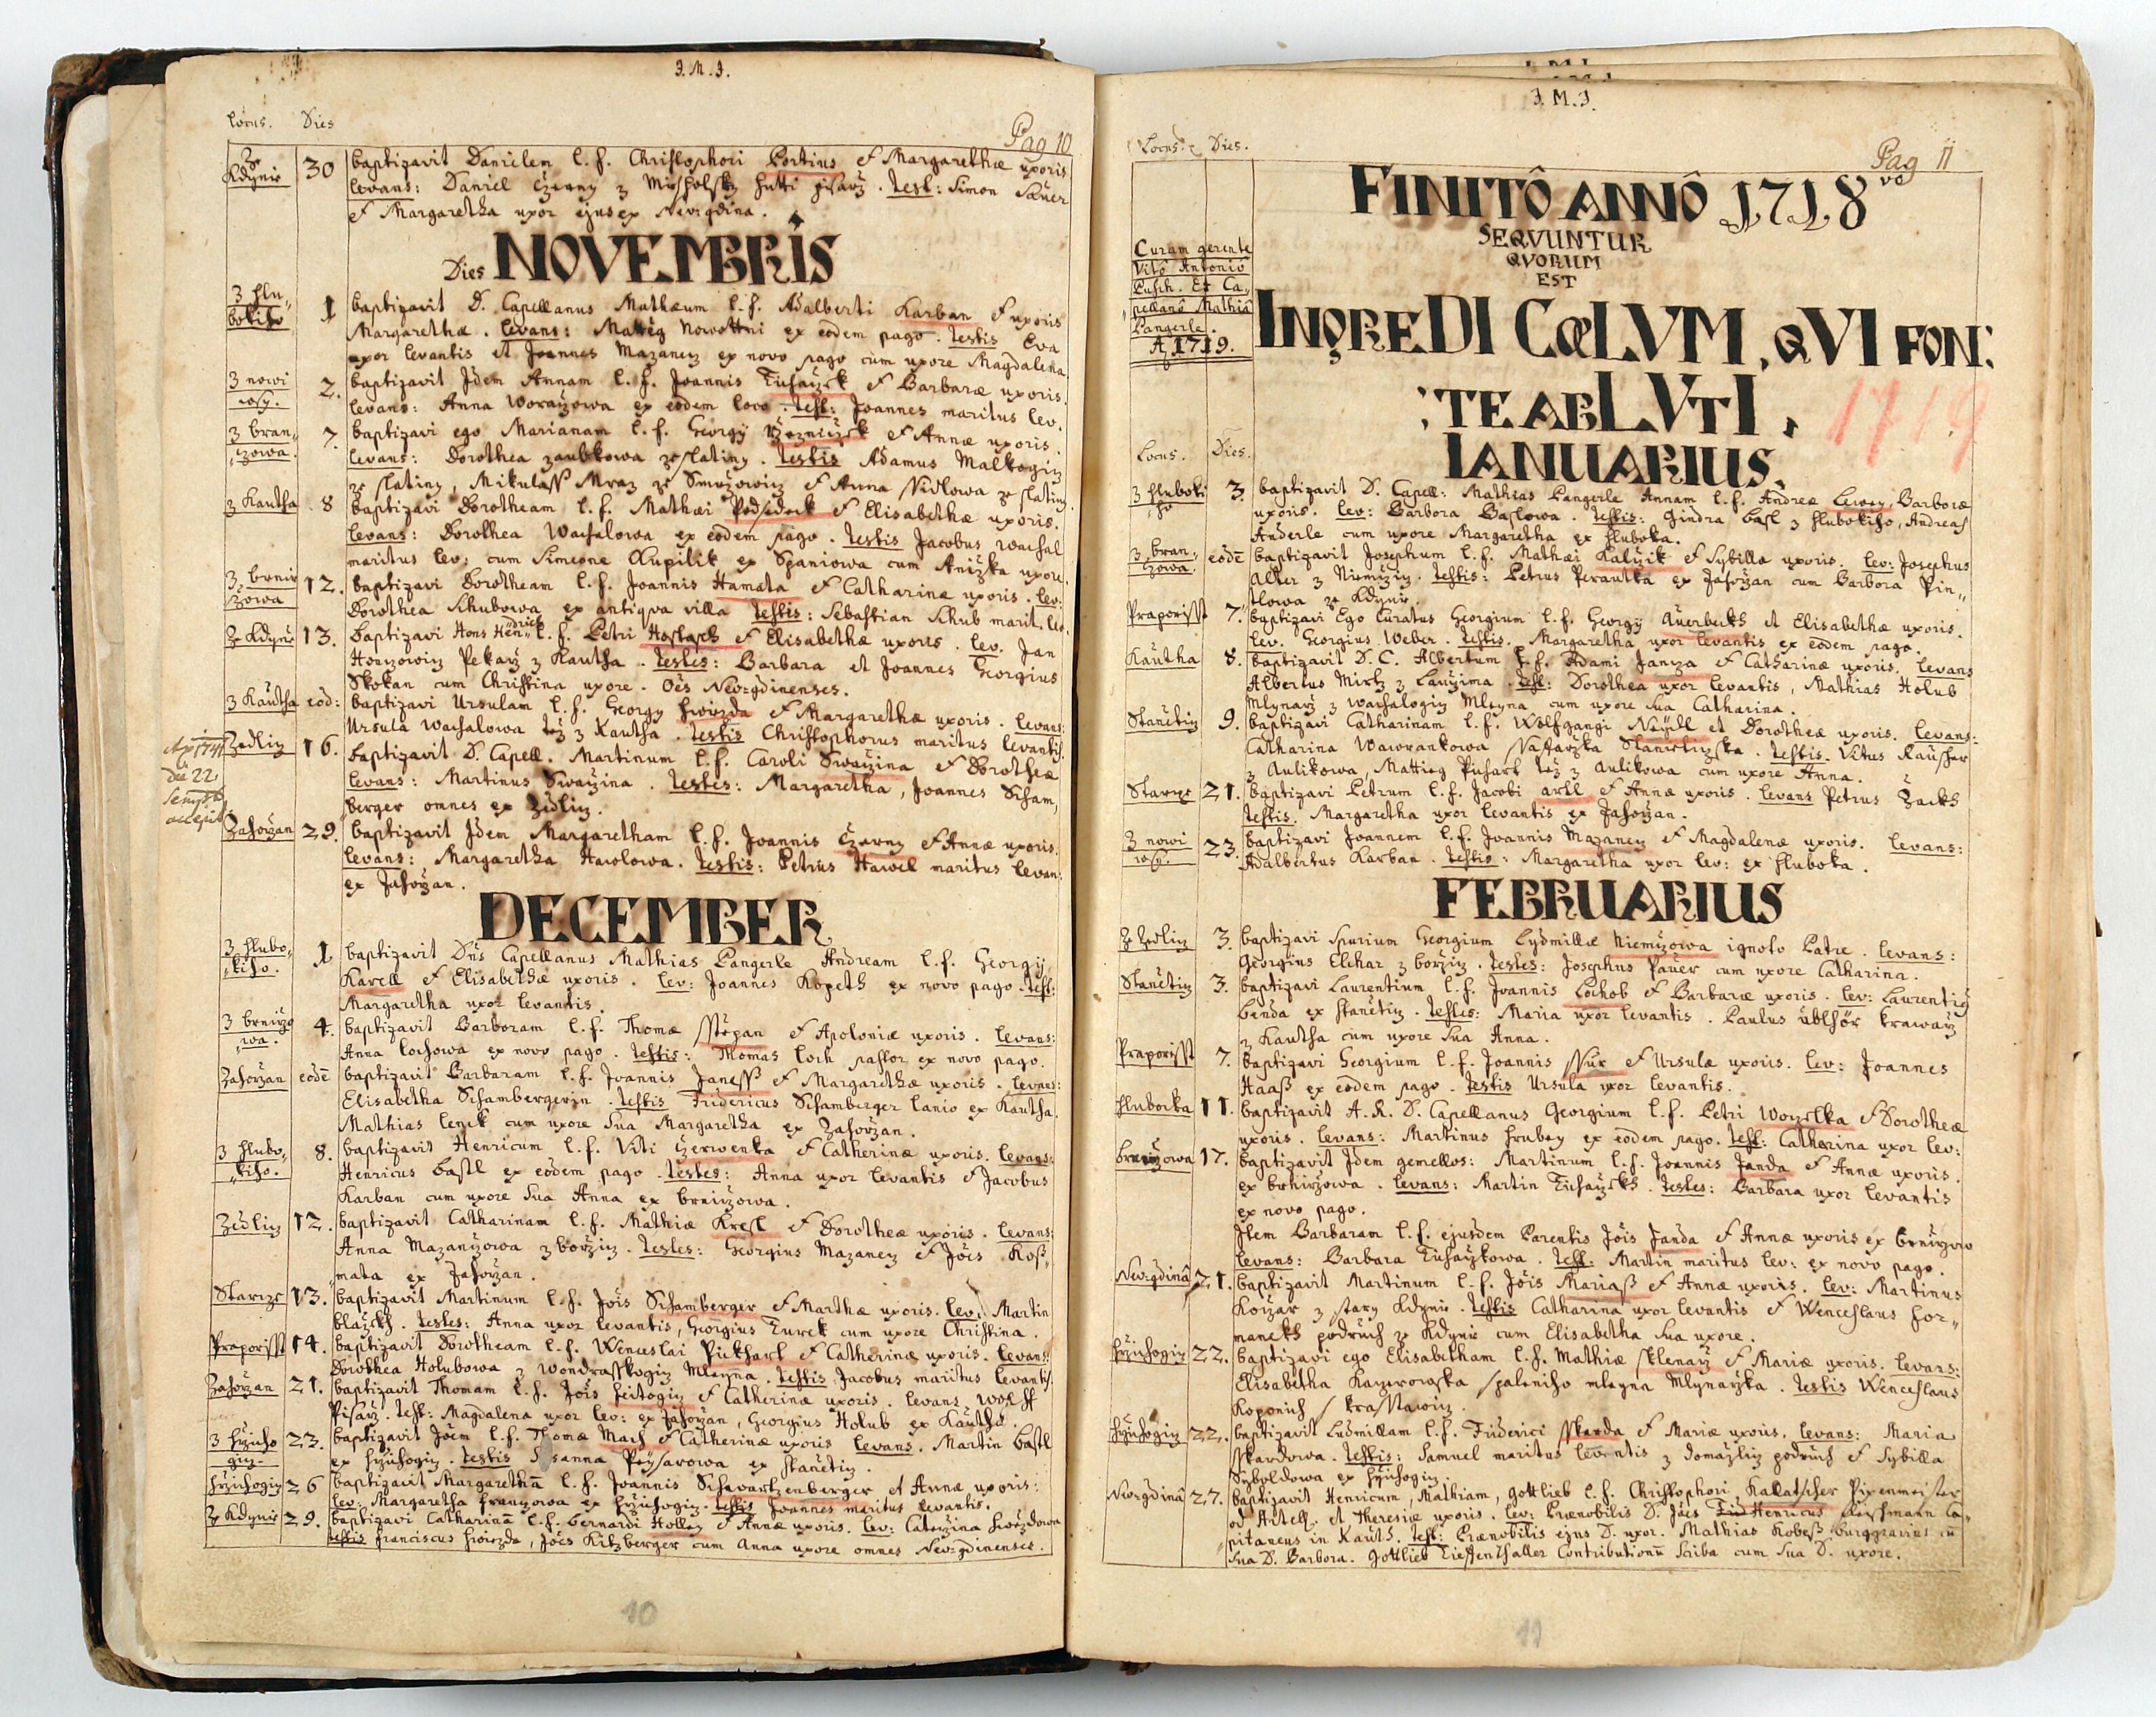 J.M.J.
Locus. Dies
Pag 10
Ze Kdynie 30 baptizavit Danielem l.f. Christophori Portius et Margarethæ uxoris
levans: Daniel Czerny z hutti pisarz. Test: Simon Sauer
et Margaretha uxor ejus ex Neugdina.
Dies NOVEMBRIS
z Hlu„
bokiho 1 baptizavit D. Capellanus Mathæum l.f. Adalberti Karban et uxoris
Margarethæ. levans: Mattig Nowottni ex eodem pago. testis Eva
uxor levantis et Joannes Mazanecz ex novo pago cum uxore Magdalena
z nowi
wsy. 2. baptizavit Idem Annam l.f. Joannis et Barbaræ uxoris.
levans: Anna Woraczowa ex eodem loco. Test: Joannes maritus lev.
z bran„
czowa. 7. baptizavi ego Marianam l.f. Georgÿ et Annæ uxoris.
levans: Dorothea zaubkowa ze slatiny. testis Adamus Malkogicz
ze slatiny, Mikulass Mraz ze et Anna Nidlowa ze slatiny
z Kautha 8 baptizavi Dorotheam l.f. Mathæi Podsedeck et Elisabethæ uxoris.
levans: Dorothea Wachalowa ex eodem pago. testis Jacobus wachal
maritus lev: cum Simeone Kupilik ex Spaniowa cum Anižka uxore.
z brnir
czowa 12. baptizavi Dorotheam l.f. Joannis Hamata et Catharinæ uxoris. lev:
Dorothea Schubowa ex antiqva villa testis: Sebastian Schub marit. lev.
Ze Kdynie 13. baptizavi Hans Hendrich l.f. Petri et Elisabethæ uxoris. lev. Jan
Honzowicz Pekarz z Kautha. testes: Barbara et Joannes Georgius
Skokan cum Christina uxore. Oēs Neugdinenses.
z Kautha eod: baptizavi Ursulam l.f. Georgy hwiezda et Margarethæ uxoris. levans:
Ursula Wachalowa též z Kautha. testis Christophorus maritus levantis.
Ao 1741
die 22
Sempt:
accepit
Zedlicz 16. baptizavit D. Capell. Martinum l.f. Caroli Swaczina et Dorotheæ
levans: Martinus Swaczina. testes: Margaretha, Joannes Scham„
„berger omnes ex Zedlicz.
Zahorzan 29. baptizavit Idem Margaretham l.f. Joannis Czerny et Annæ uxoris.
levans: Margaretha Hawlowa. testis: Petrus Hawel maritus levan:
ex Zahorzan.
DECEMBER
z Hlubo„
„kiho. 1 baptizavit Dn̄s Capellanus Mathias Langerle Andream l.f. Georgÿ
Karell et Elisabethæ uxoris. lev: Joannes Kopeth ex novo pago. test:
Margaretha uxor levantis.
z brnirzo
„wa. 4. baptizavit Barboram l.f. Thomæ sstepan et Apoloniæ uxoris. levans:
Anna lochowa ex novo pago. testis: Thomas loch pastor ex novo pago.
Zahorzan eodē baptizavit Barbaram l.f. Joannis Janess et Margarethæ uxoris. levans:
Elisabetha Schambergerin. testis Fridericus Schamberger lanio ex Kautha.
Mathias lenck cum uxore sua Margaretha ex Zahorzan.
z Hlubo„
„kiho. 8. baptizavit Henricum l.f. Viti Czerwenka et Catherinæ uxoris. levans:
Henricus bastl ex eodem pago. testes: Anna uxor levantis et Jacobus
Karban cum uxore sua Anna ex brnirzowa.
Zedlicz 12. baptizavit Catharinam l.f. Mathiæ Kresl et Dorotheæ uxoris. levans:
Anna Mazanczowa z borzicz. testes: Georgius Mazanecz et Jōes Koss„
„mata ex Zahorzan.
Starecz 13. baptizavit Martinum l.f. Jōis Schamberger et Marthæ uxoris. lev. Martin
. testes: Anna uxor levantis, Georgius Turek cum uxore Christina.
Praporisst 14. baptizavit Dorotheam l.f. Wenceslai Pickhart et Catherinæ uxoris. levans:
Dorothea Holubowa z wondrasskogicz Mleyna. testis Jacobus maritus levantis.
Zahorzan 21. baptizavit Thomam l.f. Jōis et Catherinæ uxoris. levans. wolff
Pisarz. test: Magdalena uxor lev: ex Zahorzan, Georgius Holub ex Kautha.
z hzicho
gicz. 23. baptizavit Jōem l.f. Thomæ Mach et Catherinæ uxoris levans. Martin bastl
ex hzichogicz. testis Susanna Peysarowa ex staneticz.
hzichogicz 26 baptizavit Margarethā l.f. Joannis Schwartzenberger et Annæ uxoris:
lev: Margaretha ex hzichogicz. testis Joannes maritus levantis.
Ze Kdynie 29. baptizavi Catharinā l.f. bernardi Holley et Annæ uxoris. lev: Caterzina hwiezdowa
testis franciscus hwiezda, Jōes Kitzberger cum Anna uxore omnes Neugdinenses.
10
J.M.J.
Locus. Dies.
Pag 11
FINITÔ ANNÔ 1718vo
SEQVUNTUR
QVORUM
EST
Curam gerente
Vitô Antoniô
Pusch. Et Ca„
„pellanô Mathiâ
Langerle.
A 1719.
INGREDI CœLVM, QVI FON:
:TE ABLVTI.
1719
IANUARIUS.
Locus. Dies.
z hluboki
ho 3. baptizavit D. Capell: Mathias Langerle Annam l.f. Andreæ Lewey, Barboræ
uxoris. lev: Barbora Baslowa. testis: Gindra basl z hlubokiho, Andreas
Anderle cum uxore Margaretha ex hluboka.
z bran„
zowa. eodē baptizavit Josephum l.f. Mathæi Kalczik et Sybilla uxoris. lev: Josephus
Alter z Niemczicz. testis: Petrus Perautka ex Zahorzan cum Barbora Pin„
„tlowa ze Kdynie.
Praporisst 7. baptizavi Ego Curatus Georgium l.f. Georgÿ Auerbecks et Elisabethæ uxoris.
lev. Georgius Weber. testis. Margaretha uxor levantis ex eodem pago.
Kautha 8. baptizavit D.C. Albertum l.f. Adami Jancza et Catharinæ uxoris. levans
Albertus Mirtz z Lauzima. test: Dorothea uxor levantis, Mathias Holub
Mlynarz z wachalogicz Mleyna cum uxore sua Catharina.
Staneticz 9. baptizavi Catharinam l.f. Wolfgangi et Dorotheæ uxoris. levans:
Catharina Wawrankowa Stanieticzska. testis. Vitus Rauscher
z Aulikowa, Mattieg Pichart též z Aulikowa cum uxore Anna.
Starecz 21. baptizavi Petrum l.f. Jacobi artl et Annæ uxoris. levans Petrus Zacks
testis. Margaretha uxor levantis ex Zahorzan.
z nowi
wsy. 23. baptizavi Joannem l.f. Joannis Mazanecz et Magdalenæ uxoris. levans:
Adalbertus Karban. testis: Margaretha uxor lev: ex hluboka.
FEBRUARIUS
z Zedlicz 3. baptizavi Spurium Georgium Lydmillæ Niemczowa ignoto Patre. levans:
Georgius Elchar z borzicz. testes: Josephus Pauer cum uxore Catharina.
Staneticz 3. baptizavi Laurentium l.f. Joannis Lochob et Barbaræ uxoris. lev: Laurentiÿ
benda ex staneticz. testes: Maria uxor levantis. Paulus üblhör krawarz
z Kautha cum uxore sua Anna.
Praporisst 7. baptizavi Georgium l.f. Joannis et Ursulæ uxoris. lev: Joannes
Haass ex eodem pago. testis Ursula uxor levantis.
hlubocka 11. baptizavit A.R.D. Capellanus Georgium l.f. Petri Woyzelka et Dorotheæ
uxoris. levans: Martinus hrubey ex eodem pago. test: Catharina uxor lev:
brnirzowa 17. baptizavit Idem gemellos: Martinum l.f. Joannis Janda et Annæ uxoris.
ex brnirzowa. levans: Martin . testes: Barbara uxor levantis
ex novo pago.
Item Barbaram l.f. ejusdem Parentis Jōis Janda et Annæ uxoris ex brnirzow
levans: Barbara . test: Martin maritus lev: ex novo pago.
Neugdinâ 21. baptizavit Martinum l.f. Jōis Mariass et Annæ uxoris. lev: Martinus
Koczar z stary Kdynie. testis Catharina uxor levantis et Wenceslaus for„
manecks podruh ze Kdynie cum Elisabetha sua uxore.
hzichogicz 22. baptizavi ego Elisabetham l.f. Mathiæ sklenarz et Mariæ uxoris. levans:
Elisabetha spaleniho mleyna Mlynarzka. testis Wenceslaus
Koponich / krasstawicz.
hzichogicz 22. baptizavit Ludmillam l.f. Friderici sskarda et Mariæ uxoris. levans: Maria
sskardowa. testis: Samuel maritus levantis z domazlicz podruh et Sybilla
Syboldowa ex hzichogicz.
Neugdinâ 27. baptizavit Henricum, Mathiam, gottlieb l.f. Christophori Kallatscher Pixenmeister
od Artell. et Theresiæ uxoris. lev: Prænobilis D. Jōes Henricus Ca„
„pitaneus in Kauth. test: Prænobilis ejus D. uxor. Mathias Kobess burggravius cū
sua D. Barbora. gottlieb Tieffenthaller Contributionū Scriba cum sua D. uxore.
11